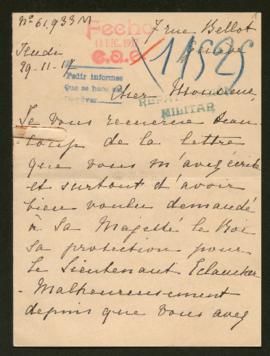 Nº 61,933 M
Fecha
7 rue Bellot
Jeudi
29-11-17
11525
Pedir informes
Cher Monsieur
MILITAR
Je vous remercie beau
coup de la lettre
que vous m'avez écrite
et surtout d'avoir
bien voulu demandé
à Sa Magesté le Roi
sa protection pour
le Lieutenant
Malheureusement
depuis que vous avez